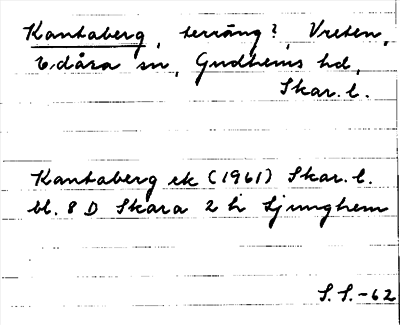 Kantaberg, terräng?, Vreten,
Edåsa sn, Gudhems hd,
Skar. l.
Kantaberg ek (1961) Skar. l.
bl. 8 D Skara 2 h Ljunghem
S. S. -62